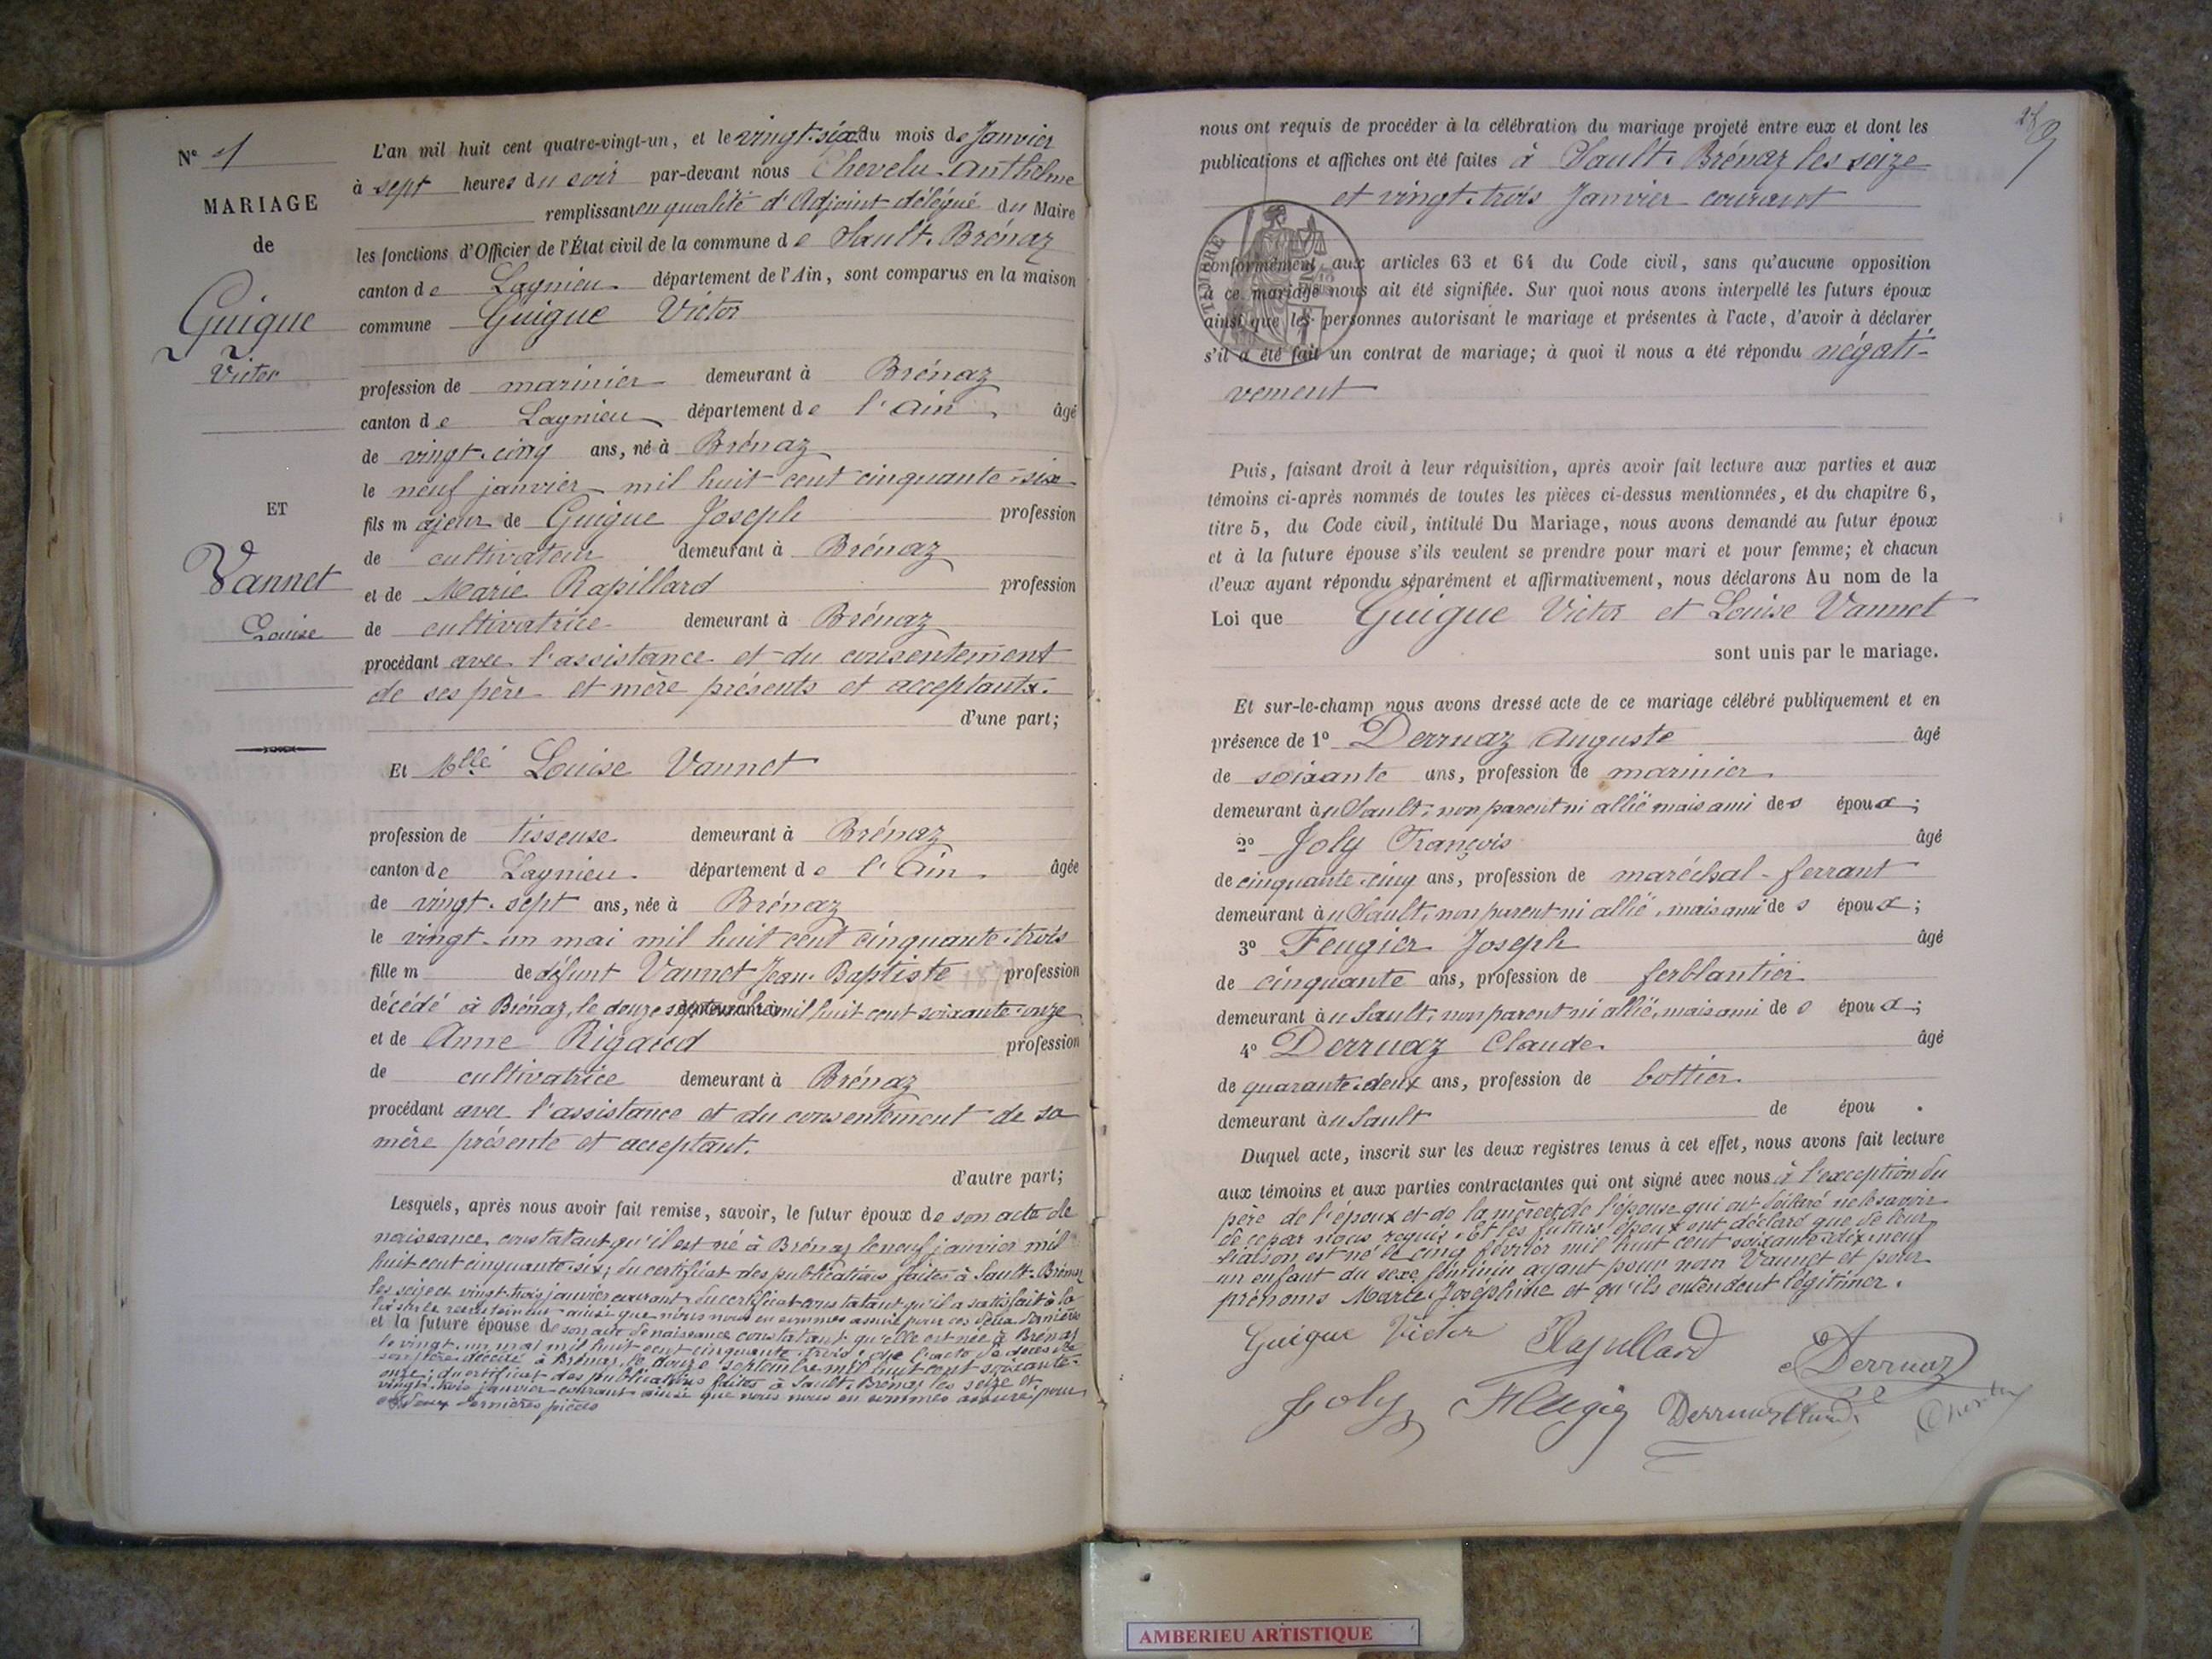 N° 1
MARIAGE
de
Guigue
Victor
ET
Vannet
Louise
L'an mil huit cent quatre-vingt-un, et le vingt-six du mois de Janvier
à sept heures du soir par-devant nous Chevelu Anthelme
remplissant en qualité d'Adjoint délégué du Maire
les fonctions d'Officier de l'État civil de la commune de Sault-Brénaz
canton de Lagnieu département de l'Ain, sont comparus en la maison
commune Guigue Victor
profession de marinier demeurant à Brénaz
canton de Lagnieu département de l'Ain âgé
de vingt-cinq ans, né à Brénaz
le neuf janvier mil huit cent cinquante-six
fils majeur de Guigue Joseph profession
de cultivateur demeurant à Brénaz
et de Marie Rapillard profession
de cultivatrice demeurant à Brénaz
procédant avec l'assistance et du consentement
de ses père et mère présents et acceptants.
d'une part;
Et Mlle Louise Vannet
profession de tisseuse demeurant à Brénaz
canton de Lagnieu département de l'Ain âgée
de vingt-sept ans, née à Brénaz
le vingt-un mai mil huit cent cinquante-trois
fille m de défunt Vannet Jean-Baptiste profession
décédé à Brénaz, le douze septembre mil huit cent soixante-onze
et de Anne Rigaud profession
de cultivatrice demeurant à Brénaz
procédant avec l'assistance et du consentement de sa
mère présente et acceptant.
d'autre part;
Lesquels, après nous avoir fait remise, savoir, le futur époux de son acte de
naissance constatant qu'il est né à Brénaz le neuf janvier mil
huit cent cinquante-six; du certificat des publications faites à Sault-Brénaz
les seize et vingt-trois janvier courant, du certificat constatant qu'il a satisfait à la
loi sur le recrutement ainsi que nous nous en sommes assuré pour ces deux dernières
et la future épouse de son acte de naissance constatant qu'elle est née à Brénaz
le vingt-un mai mil huit cent cinquante-trois; de l'acte de décès de
son père décédé à Brénaz, le douze septembre mil huit cent soixante-
onze; du certificat des publications faites à Sault-Brénaz les seize et
vingt-trois janvier courant ainsi que nous nous en sommes assuré pour
ces deux dernières pièces
nous ont requis de procéder à la célébration du mariage projeté entre eux et dont les
publications et affiches ont été faites à Sault-Brénaz les seize
et vingt-trois Janvier courant
TIMBRE
conformément aux articles 63 et 64 du Code civil, sans qu'aucune opposition
à ce mariage nous ait été signifiée. Sur quoi nous avons interpellé les futurs époux
ainsi que les personnes autorisant le mariage et présentes à l'acte, d'avoir à déclarer
s'il a été fait un contrat de mariage; à quoi il nous a été répondu négati-
vement
Puis, faisant droit à leur réquisition, après avoir fait lecture aux parties et aux
témoins ci-après nommés de toutes les pièces ci-dessus mentionnées, et du chapitre 6,
titre 5, du Code civil, intitulé Du Mariage, nous avons demandé au futur époux
et à la future épouse s'ils veulent se prendre pour mari et pour femme; et chacun
d'eux ayant répondu séparément et affirmativement, nous déclarons Au nom de la
Loi que Guigue Victor et Louise Vannet
sont unis par le mariage.
Et sur-le-champ nous avons dressé acte de ce mariage célébré publiquement et en
présence de 1° Derruaz Auguste âgé
de soixante ans, profession de marinier
demeurant à u Sault, non parent ni allié mais ami des époux;
2° Joly François âgé
de cinquante-cinq ans, profession de maréchal-ferrant
demeurant à u Sault, non parent ni allié, mais ami des époux;
3° Feugier Joseph âgé
de cinquante ans, profession de ferblantier
demeurant à u Sault, non parent ni allié, mais ami des époux;
4° Derruaz Claude âgé
de quarante-deux ans, profession de bottier
demeurant à u Sault de épou .
Duquel acte, inscrit sur les deux registres tenus à cet effet, nous avons fait lecture
aux témoins et aux parties contractantes qui ont signé avec nous à l'exception du
père de l'époux et de la mère de l'épouse qui ont déclaré ne le savoir
de ce par nous requis. Et les futurs époux ont déclaré que de leur
liaison est né le cinq février mil huit cent soixante-dix-neuf
un enfant du sexe féminin ayant pour nom Vannet et pour
prénoms Marie Joséphine et qu'ils entendent légitimer.
Guigue Victor Rapillard Derruaz
Joly Feugier Derruaz Claude
AMBERIEU ARTISTIQUE